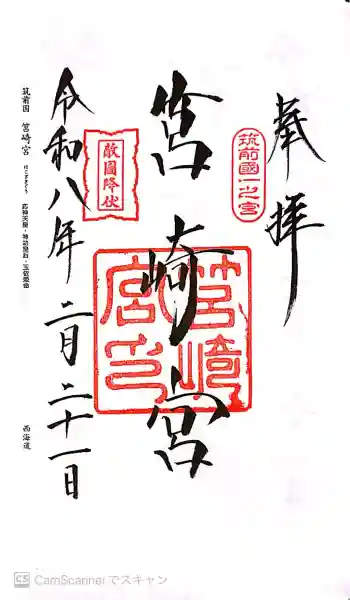 奉拝
筑前國一之宮
筥崎宮
筥崎宮印
敵國降伏
令和八年二月二十一日
筑前国 筥崎宮 はこざきぐう 応神天皇・神功皇后・玉依姫命
西海道
CS CamScanner でスキャン